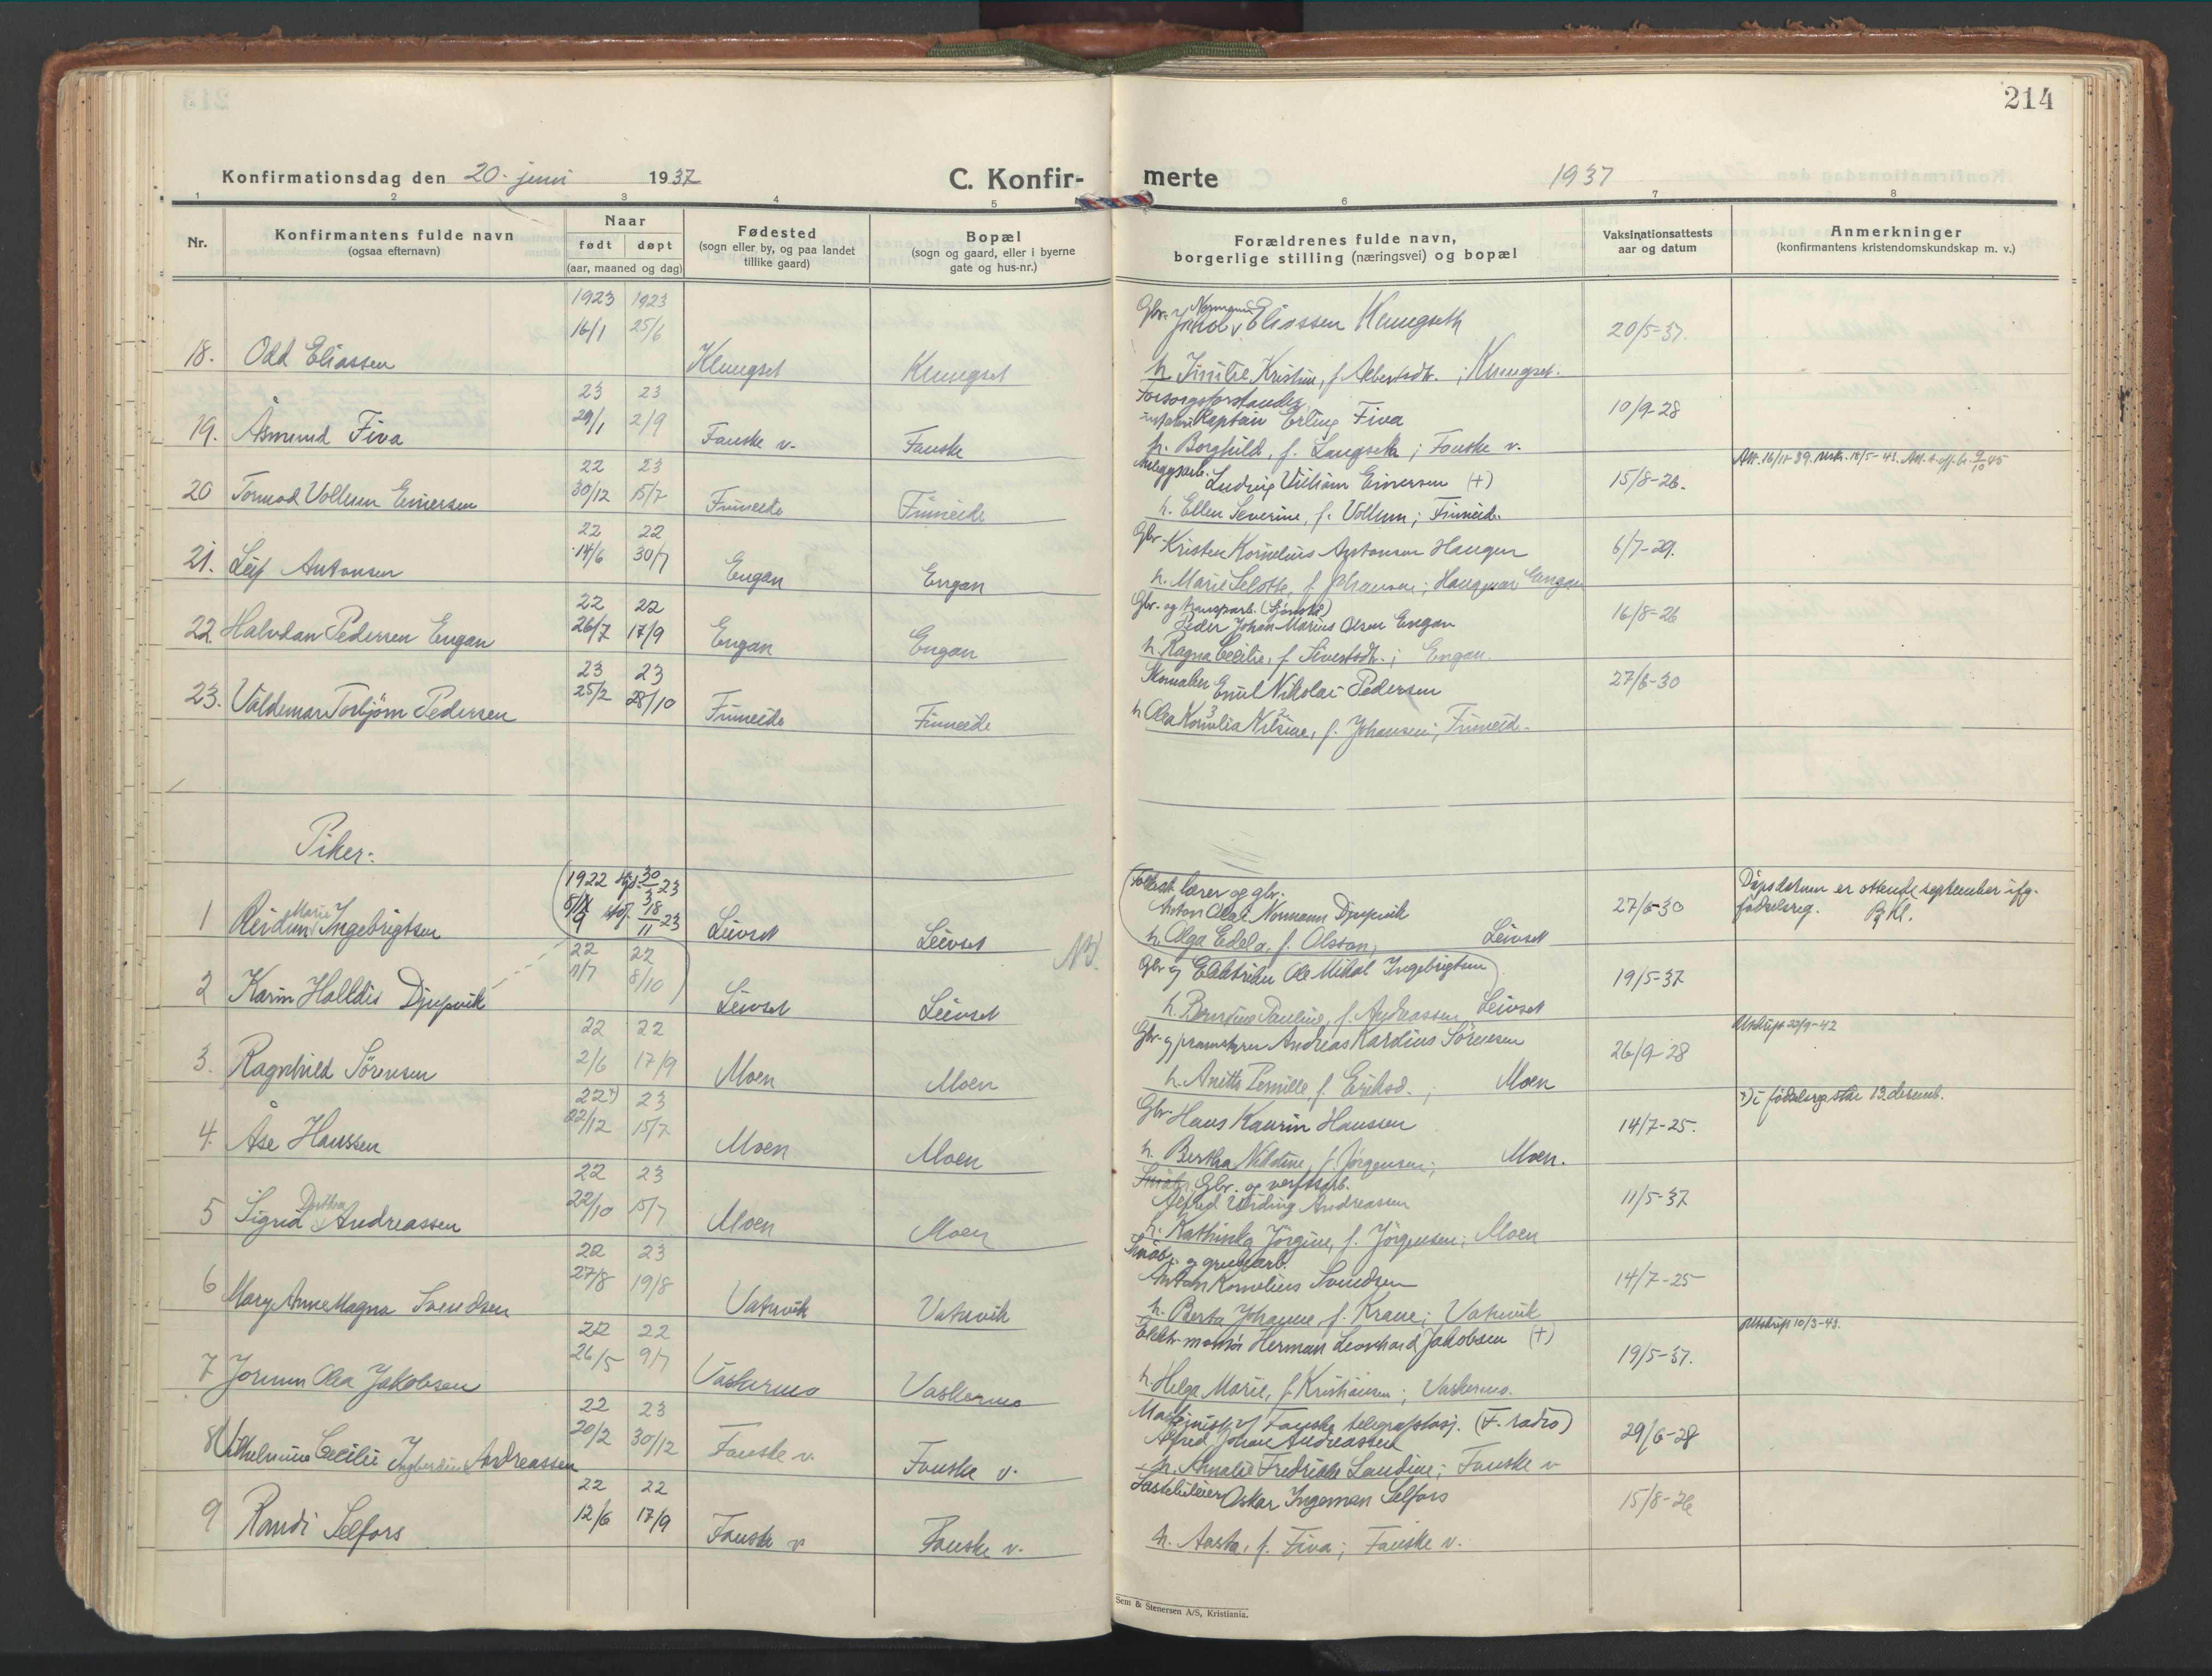 214
Konfirmationsdag den 20. juni 1937
C. Konfir-
merte
1937
1 2 3 4 5 6 7 8
Nr.
Konfirmantens fulde navn
(ogsaa efternavn)
Naar
født døpt
(aar, maaned og dag)
Fødested
(sogn eller by, og paa landet
tillike gaard)
Bopæl
(sogn og gaard, eller i byerne
gate og hus-nr.)
Forældrenes fulde navn,
borgerlige stilling (næringsvei) og bopæl
Vaksinationsattests
aar og datum
Anmerkninger
(konfirmantens kristendomskundskap m. v.)
1923 1923
16/1 25/6
Gbr. Eliassen Klungseth
20/5-37.
18. Odd Eliassen Klungset Klungset
h. Kristine, f. Albertsdtr. ; Klungset.
23 23
29/1 2/9
Forsorgsforstander
Kaptein Erling Fiva
10/9-28
19. Åsmund Fiva Fauske v. Fauske
h. Borghild, f. Langseth ; Fauske v.
22 23
30/12 15/7
Anleggsarb. Ludvig William Einersen (+)
15/8-26.
20 Tormod Vollum Einersen Finneide Finneide
h. Ellen Severine, f. Vollum ; Finneid.
22 22
14/6 30/7
Gbr. Kristen Kornelius Antonsen Haugen
6/7-29.
21. Leif Antonsen Engan Engan
h. Marie Selotte, f. Johansen ; Engan
22 22
26/7 17/9
Gbr. og
Peder Johan Marius Olsen Engan
16/8-26
22. Halvdan Pedersen Engan Engan Engan
h. Ragna Cecilie, f. Sivertsdtr. ; Engan.
23 23
25/2 28/10
Skomaker Emil Nikolai Pedersen
27/6-30
23. Valdemar Torbjørn Pedersen Finneide Finneide
h. Olea Kornelia Nilsine, f. Johansen ; Finneid.
3 2
Piker:
1922
8/9
30/3 23
18/11 23
lærer og gbr.
Anton Olai Normann Djupvik
27/6-30
Dåpsdatum er ottende september ifg.
fødselsreg. Kl.
1 Reidun Marie Ingebrigtsen Leivset Leivset
h. Olga Edela, f. Olsson, Leivset
NB.
22 22
11/7 8/10
Gbr og Elektriker Ole Mikal Ingebrigtsen
19/5-37
2 Karin Halldis Djupvik Leivset Leivset
h. Berntine Pauline, f. Andreassen Leivset
22 22
2/6 17/9
Gbr. og Andreas Kardius Sørensen
26/9-28
Utskrift 22/9-42
3. Ragnhild Sørensen Moen Moen
h. Anitte Pernille, f. Eriksd. ; Moen
22 +) 23
22/12 15/7
Gbr. Hans Kaurin Hanssen
14/7-25.
+) i fødselsreg. står 13. desemb.
4. Åse Hanssen Moen Moen
h. Bertha Nikoline, f. Jørgensen ; Moen.
22 23
22/10 15/7
Gbr. og verftsarb.
Alfred Andreassen
11/5-37
5 Sigrid Dorthea Andreassen Moen Moen
h. Kathinka Jørgine, f. Jørgensen ; Moen
22 23
27/8 19/8
Småbr. og grubearb.
Anton Kornelius Svendsen
14/7-25
6 Mary Anne Magna Svendsen Vatnvik Vatnvik
h. Berta Johanne f. Krane ; Vatnvik
22 22
26/5 9/7
Elektr. montør Herman Leonhard Jakobsen (+)
19/5-37.
Utskrift 10/3-43.
7 Jorunn Olea Jakobsen Vaskermo Vaskermo
h. Helga Marie, f. Kristiansen ; Vaskermo.
22 23
20/2 30/12
Maskinist v/ Fauske telegrafstasj. (F. radio)
Alfred Johan Andreassen
29/6-28
8 Vilhelmine Cecilie Ingberdine Andreassen Fauske v. Fauske v.
h. Amalie Fredrikke Landine ; Fauske v
22 22
12/6 17/9
Lastebileier Oskar Ingeman Selfors
15/8-26
9 Randi Selfors Fauske v Fauske v.
h. Aasta, f. Fiva ; Fauske v.
Sem & Stenersen A/S, Kristiania.